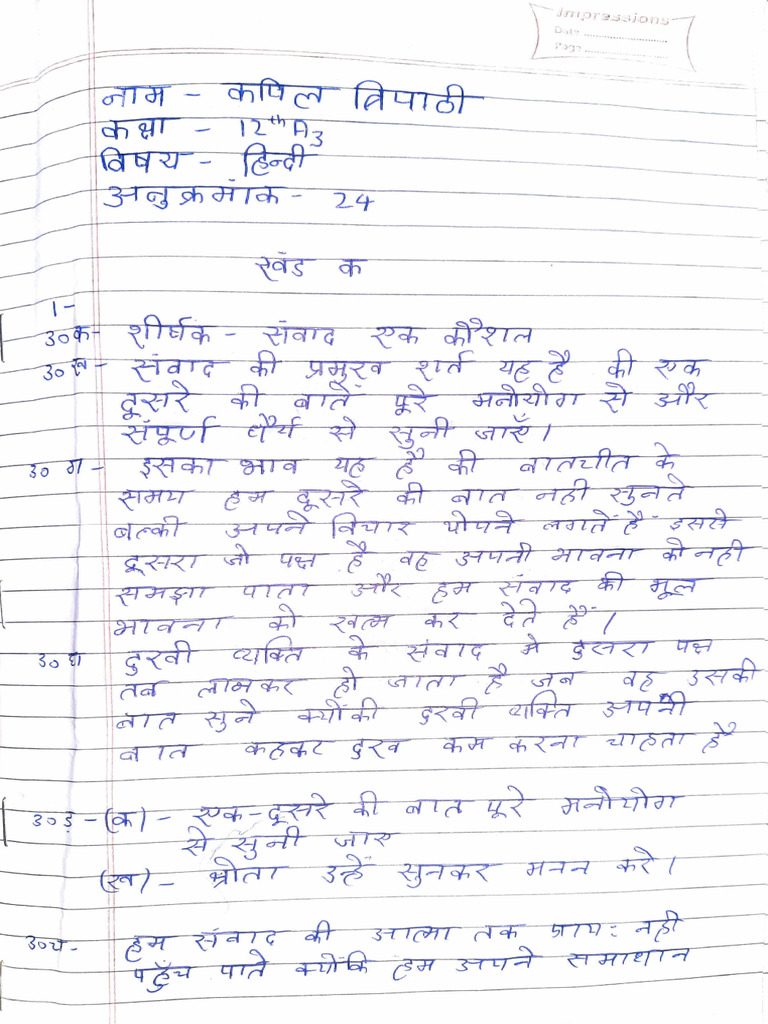 Impressions
Date
Page
नाम - कपिल त्रिपाठी
कक्षा - 12th A3
विषय - हिन्दी
अनुक्रमांक - 24
खंड क
1-
उ०क- शीर्षक - संवाद एक कौशल
उ०ख- संवाद की प्रमुख शर्त यह है की एक
दूसरे की बातें पूरे मनोयोग से और
संपूर्ण धैर्य से सुनी जाएँ।
उ०ग- इसका भाव यह है की बातचीत के
समय हम दूसरे की बात नही सुनते
बल्की अपने विचार थोपने लगतें हैं इससे
दूसरा जो पक्ष है वह अपनी भावना को नही
समझा पाता और हम संवाद की मूल
भावना को खत्म कर देते हैं।
उ०घ दुखी व्यक्ति के संवाद मे दुसरा पक्ष
तब लाभकर हो जाता है जब वह उसकी
बात सुने क्योंकी दुखी व्यक्ति अपनी
बात कहकर दुख कम करना चाहता है
उ०ड़-(क)- एक-दूसरे की बात पूरे मनोयोग
से सुनी जाए
(ख)- श्रोता उन्हें सुनकर मनन करे।
उ०च- हम संवाद की आत्मा तक प्राय: नही
पहुँच पाते क्योंकि हम अपने समाधान